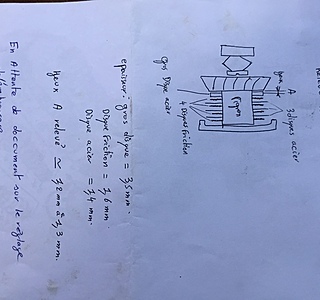 A
3 disques acier
jeux
Pignon
4 disques friction
gros Disque acier
epaisseur: gros disque = 3,5 mm
Disque friction = 1,6 mm.
Disque acier = 1,4 mm.
jeux A relevé ≃ 1,2 mm à 1,3 mm.
En Attente de document sur le réglage